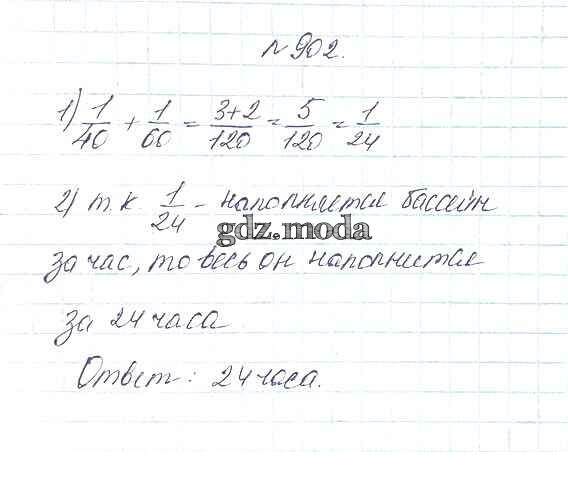 № 902.
1) 1/40 + 1/60 = 3+2/120 = 5/120 = 1/24
2) т.к. 1/24 - наполняется бассейн
gdz.moda
за час, то весь он наполнится
за 24 часа
Ответ: 24 часа.